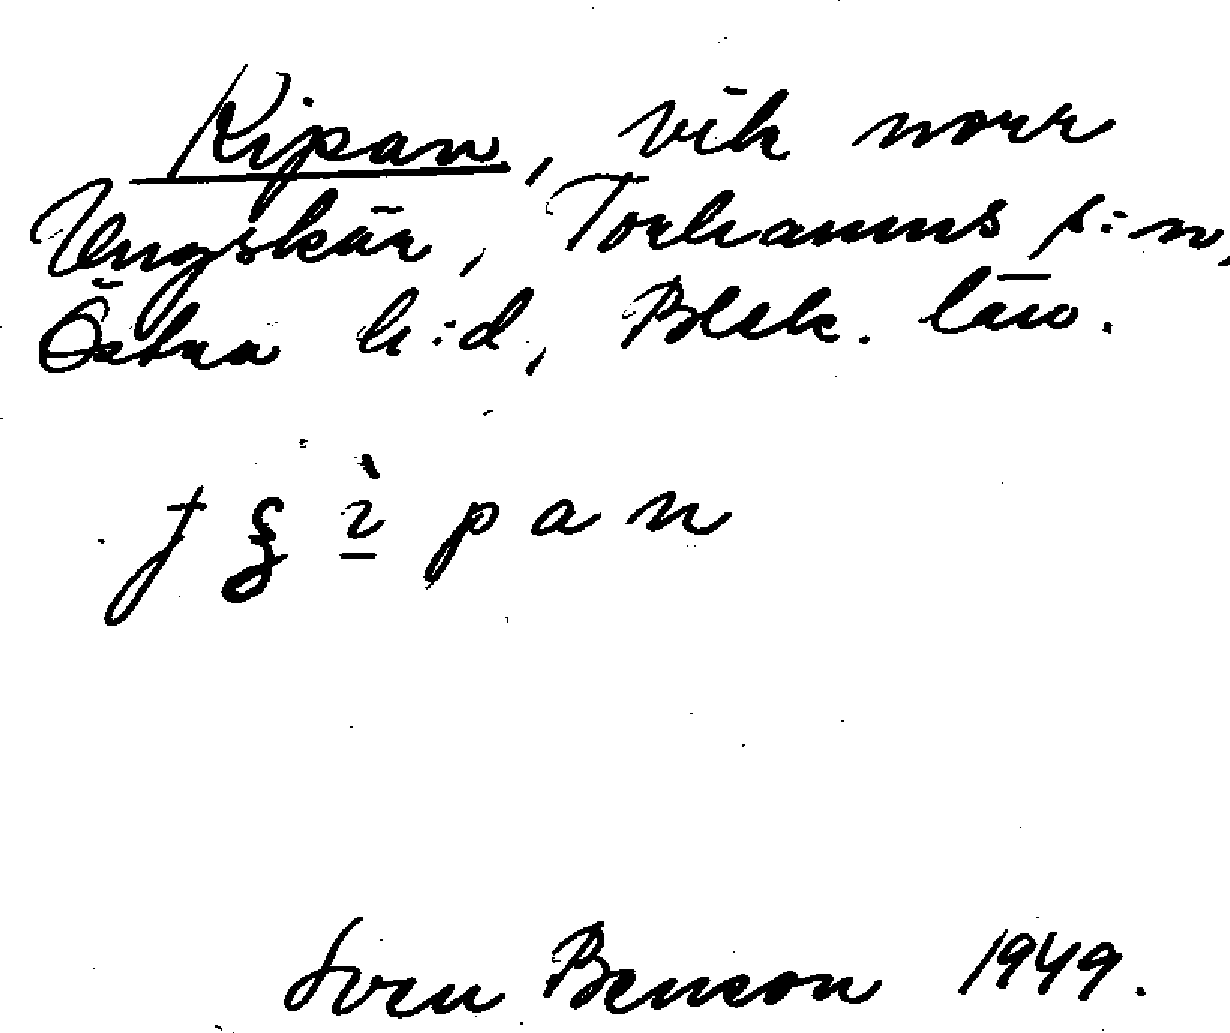 Kipan, vik norr
Ungskär, Torhamns s:n,
Östra h:d, Blek. län.
ì̠pan
Sven Benson 1949.